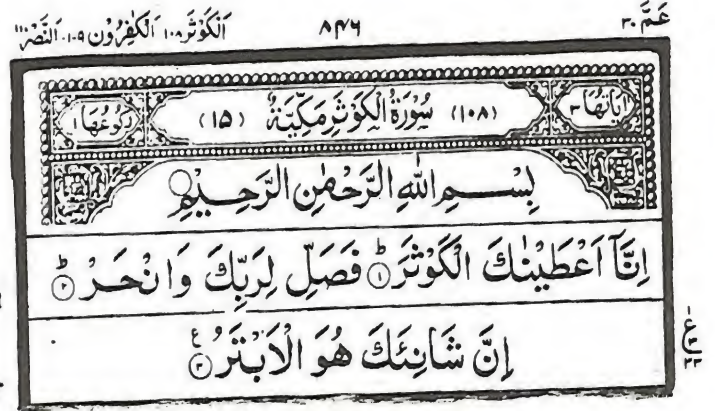 عَمَّ ٣٠ ٨٤٦ اَلْكَوْثَر ١٠٨ اَلْكٰفِرُوْن ١٠٩ اَلنَّصْر ١١٠
اٰيَاتُهَا ٣ (١٠٨) سُوْرَةُ الْكَوْثَرِ مَكِّيَّةٌ (١٥) رُكُوْعُهَا ١
بِسْمِ اللّٰهِ الرَّحْمٰنِ الرَّحِيْمِ
اِنَّاۤ اَعْطَيْنٰكَ الْكَوْثَرَ ؕ﴿١﴾ فَصَلِّ لِرَبِّكَ وَانْحَرْ ؕ﴿٢﴾
اِنَّ شَانِئَكَ هُوَ الْاَبْتَرُ ﴿٣﴾ ع